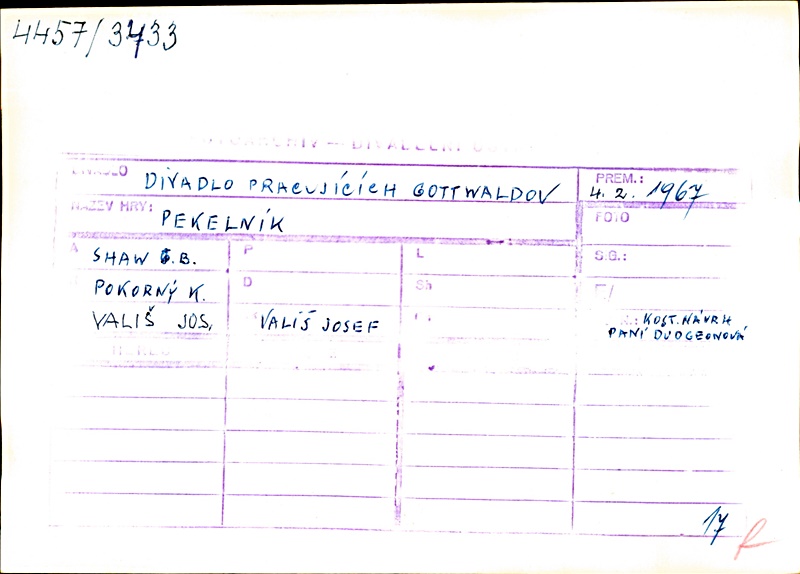 4457/3433
DIVADLO DIVADLO PRACUJÍCÍCH GOTTWALDOV
PREM.: 4. 2. 1967
NÁZEV HRY: PEKELNÍK
FOTO
A SHAW G.B.
P
L
S.G.:
POKORNÝ K.
D
Sh
VALIŠ JOS.
VALIŠ JOSEF
KOST. NÁVRH
PANÍ DUDGEONOVÁ
17
R